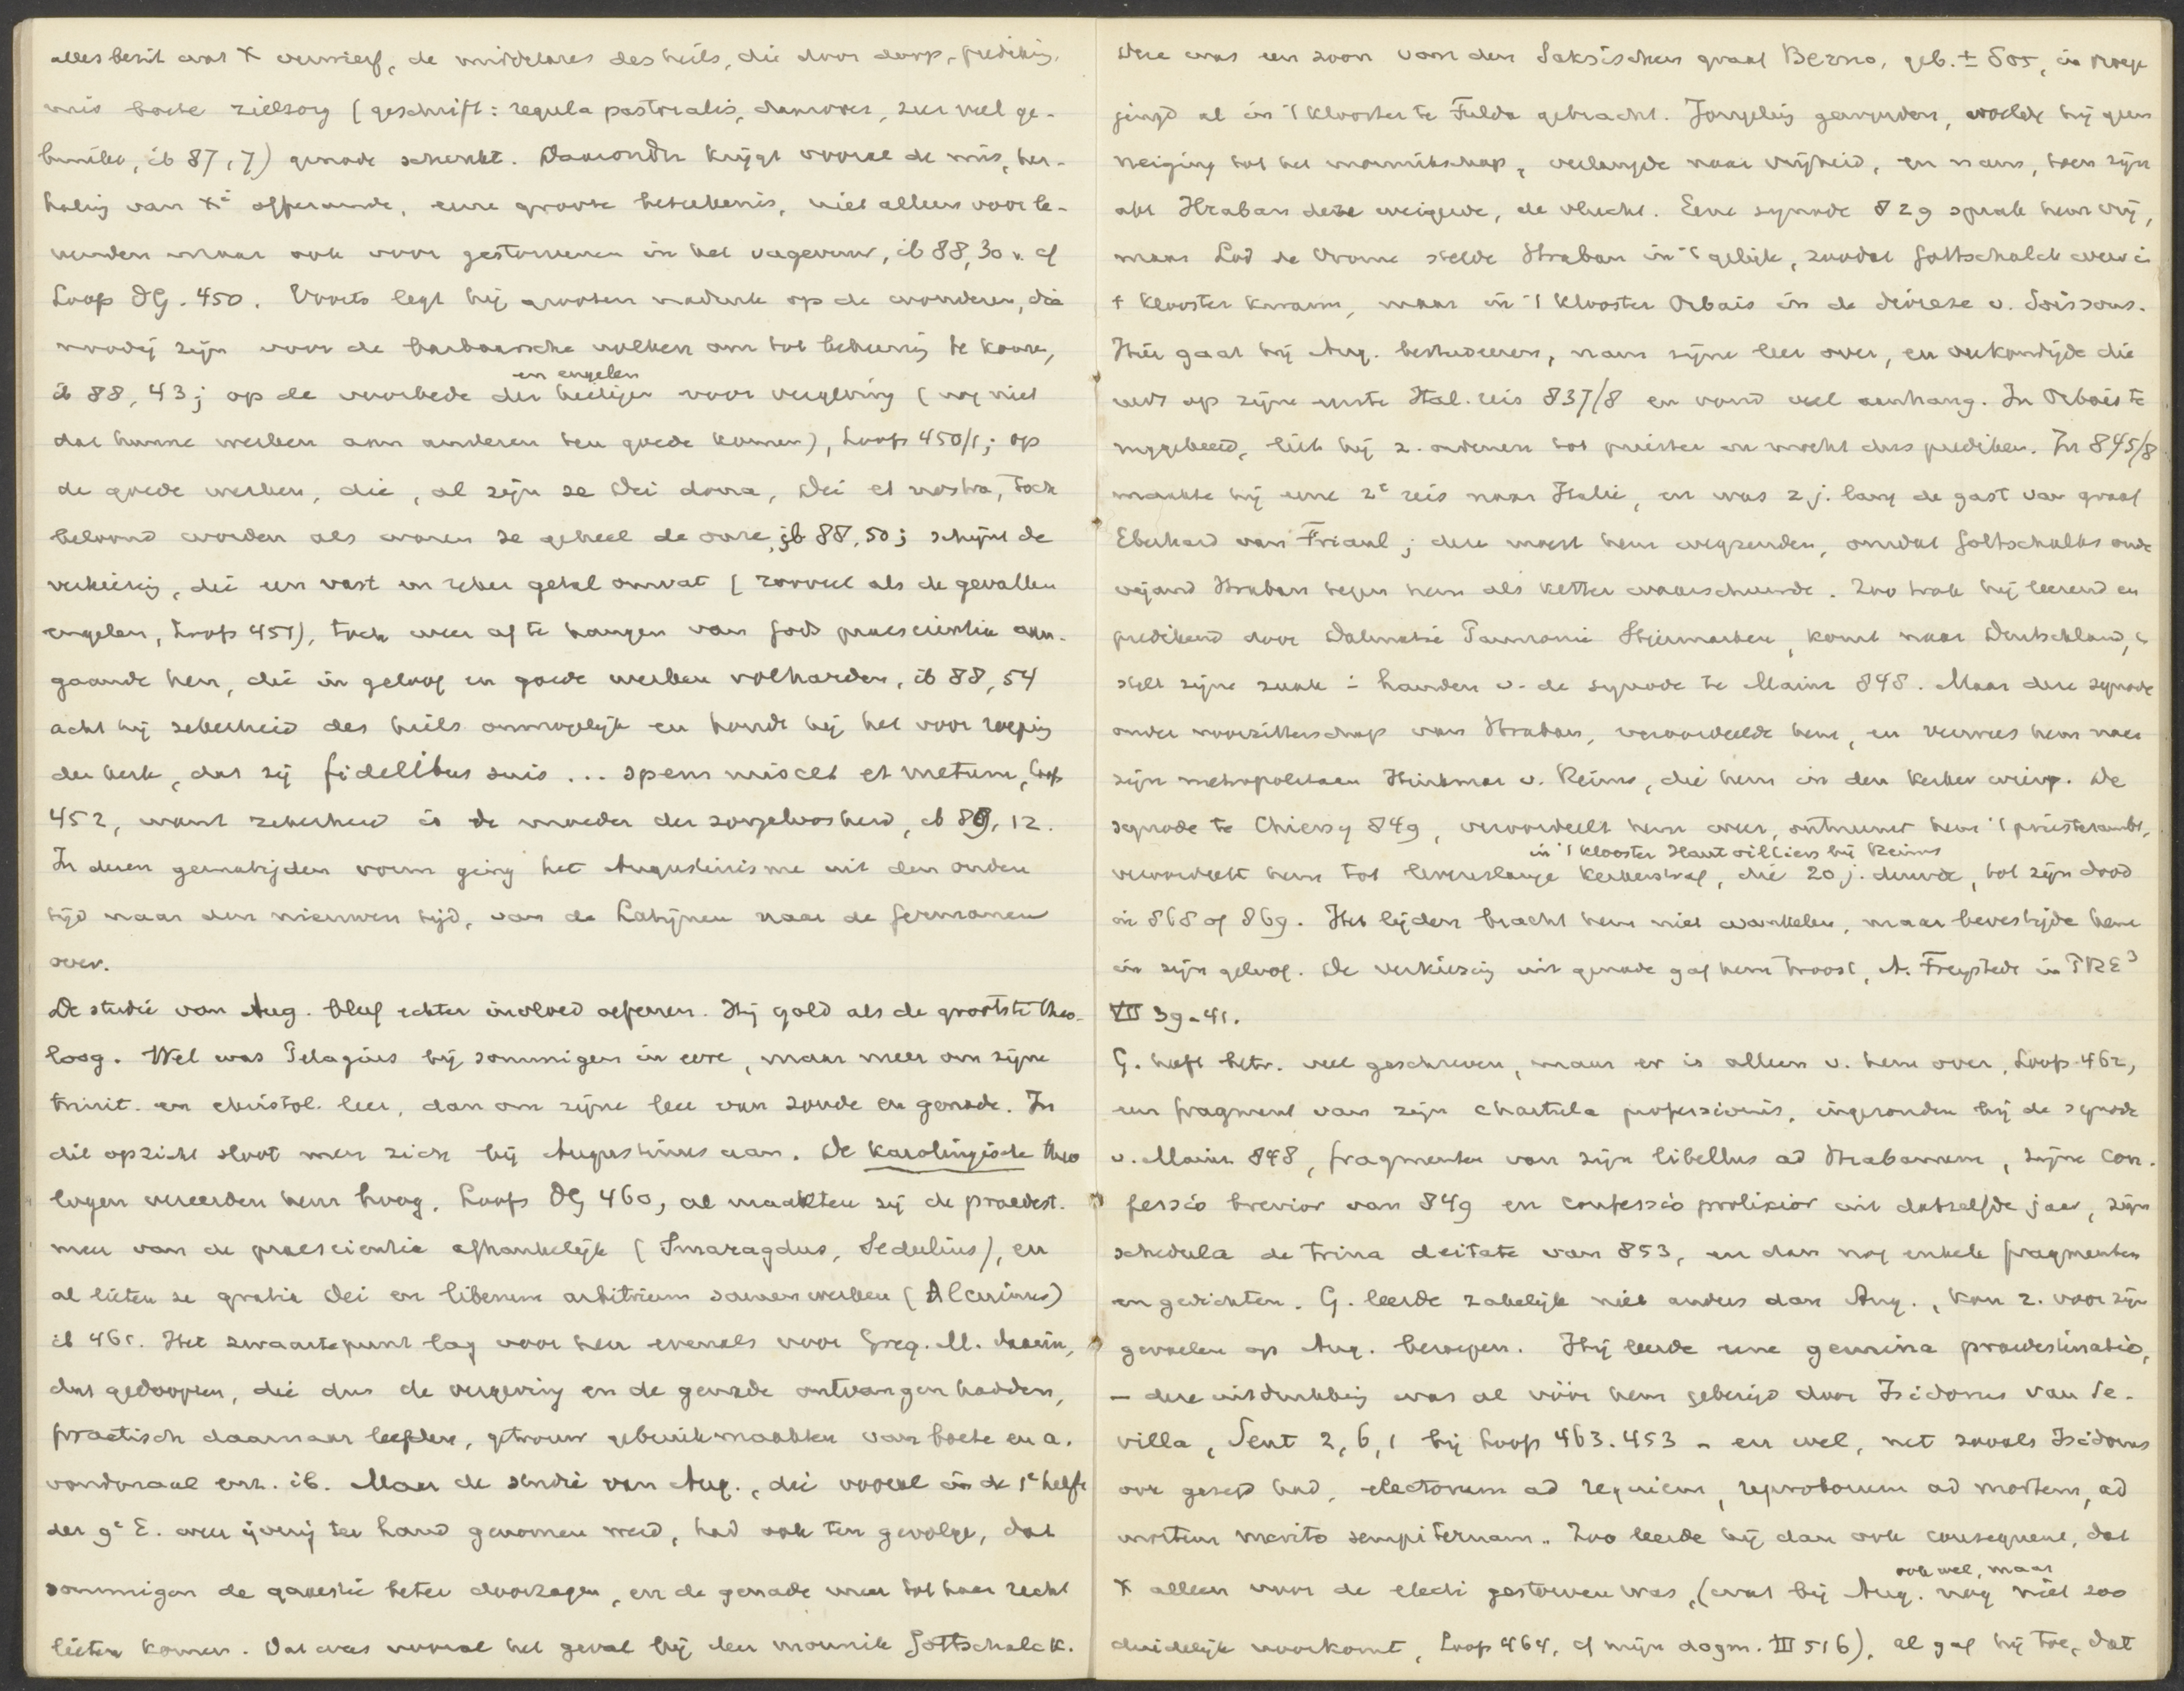 alles bezit wat X verwierf, de middelares des heils, die door doop, prediking,
mis boete zielzorg (geschrift: regula pastoralis, daarover, zeer veel ge-
bruikt, ib 87, 7) genade schenkt. Daaronder krijgt vooral de mis, her-
haling van Xi offerande, eene groote beteekenis, niet alleen voor le-
venden maar ook voor gestorvenen in het vagevuur, ib 88, 30 v. cf
Loofs DG. 450. Voorts legt hij grooten nadruk op de wonderen, die
noodig zijn voor de barbaarsche volken om tot bekeering te komen,
en engelen
ib 88, 43; op de voorbede der heiligen voor vergeving (nog niet
dat hunne werken aan anderen ten goede komen), Loofs 450/1; op
de goede werken, die, al zijn ze Dei dona, Dei et nostra, toch
beloond worden als waren ze geheel de onze, ib 88, 50; schijnt de
verkiezing, die een vast en zeker getal omvat (zooveel als de gevallen
engelen, Loofs 451), toch weer af te hangen van Gods praescientia aan-
gaande hen, die in geloof en goede werken volharden, ib 88, 54
acht hij zekerheid des heils onmogelijk en houdt hij het voor roeping
der kerk, dat zij fidelibus suis ... spem miscet et metum, Loofs
452, want zekerheid is de moeder der zorgeloosheid, ib 89, 12.
In dezen gematigden vorm ging het Augustinisme uit den ouden
tijd naar den nieuwen tijd, van de Latijnen naar de Germanen
over.
De studie van Aug. bleef echter invloed oefenen. Hij gold als de grootste theo-
loog. Wel was Pelagius bij sommigen in eere, maar meer om zijne
trinit. en christol. leer, dan om zijne leer van zonde en genade. In
dit opzicht sloot men zich bij Augustinus aan. De Karolingische theo
logen vereerden hem hoog, Loofs DG 460, al maakten zij de praedest.
meer van de praescientia afhankelijk (Smaragdus, Sedulius), en
al lieten ze gratia Dei en liberum arbitrium samenwerken (Alcuinus)
ib 461. Het zwaartepunt lag voor hen evenals voor Greg. M. daarin,
dat gedoopten, die dus de vergeving en de genade ontvangen hadden,
practisch daarnaar leefden, getrouw gebruik maakten van boete en a.
vondmaal enz. ib. Maar de studie van Aug., die vooral in de 1e helft
der 9e E. weer ijverig ter hand genomen werd, had ook ten gevolge, dat
sommigen de quaestie beter doorzagen, en de genade meer tot haar recht
lieten komen. Dat was vooral het geval bij den monnik Gottschalck.
Deze was een zoon van den Saksischen graaf Berno, geb. ± 805, in vroege
jeugd al in 't klooster te Fulda gebracht. Jongeling geworden, voelde hij geen
neiging tot het monnikschap, verlangde naar vrijheid, en nam, toen zijn
abt Hraban deze weigerde, de vlucht. Eene synode 829 sprak hem vrij,
maar Lod de Vrome stelde Hraban in 't gelijk, zoodat Gottschalck weer i
t klooster kwam, maar in 't klooster Orbais in de diocese v. Soissons.
Hier gaat hij Aug. bestudeeren, nam zijne leer over, en verkondigde die
reeds op zijne eerste Ital. reis 837/8 en vond veel aanhang. In Orbais te
ruggekeerd, liet hij z. ordenen tot priester en mocht dus prediken. In 845/8
maakte hij eene 2e reis naar Italie, en was 2 j. lang de gast van graaf
Eberhard van Friaul; deze moest hem wegzenden, omdat Gottschalks oude
vijand Hraban tegen hem als ketter waarschuwde. Zoo trok hij leerend en
predikend door Dalmatië Pannonie Stiermarken, komt naar Duitschland, &
stelt zijne zaak i handen v. de synode te Mainz 848. Maar deze synode
onder voorzitterschap van Hraban, veroordeelde hem, en verwees hem naar
zijn metropolitaan Hinkmar v. Reims, die hem in den kerker wierp. De
synode te Chiersy 849, veroordeelt hem weer, ontneemt hem 't priesterambt,
in 't klooster Hautvilliers bij Reims
veroordeelt hem tot levenslange kerkerstraf, die 20 j. duurde, tot zijn dood
in 868 of 869. Het lijden bracht hem niet aan 't wankelen, maar bevestigde hem
in zijn geloof. De verkiezing uit genade gaf hem troost, A. Freystedt in PRE³
VII 39-41.
G. heeft betr. veel geschreven, maar er is alleen v. hem over, Loofs 462,
een fragment van zijn chartula professionis, ingezonden bij de synode
v. Mainz 848, fragmenten van zijn libellus ad Hrabanum, zijne con-
fessio brevior van 849 en confessio prolixior uit datzelfde jaar, zijn
schedula de trina deitate van 853, en dan nog enkele fragmenten
en gedichten. G. leerde zakelijk niet anders dan Aug., kon z. voor zijn
gevoelen op Aug. beroepen. Hij leerde eene gemina praedestinatio,
- deze uitdrukking was al vóór hem gebezigd door Isidorus van Se-
villa, Sent 2, 6, 1 bij Loofs 463. 453 - en wel, net zooals Isidorus
ook gezegd had, electorum ad requiem, reproborum ad mortem, ad
mortem merito sempiternam.. Zoo leerde hij dan ook consequent, dat
ook wel, maar
X alleen voor de electi gestorven was, (wat bij Aug. nog niet zoo
duidelijk voorkomt, Loofs 464, cf mijn dogm. III 516), al gaf hij toe, dat